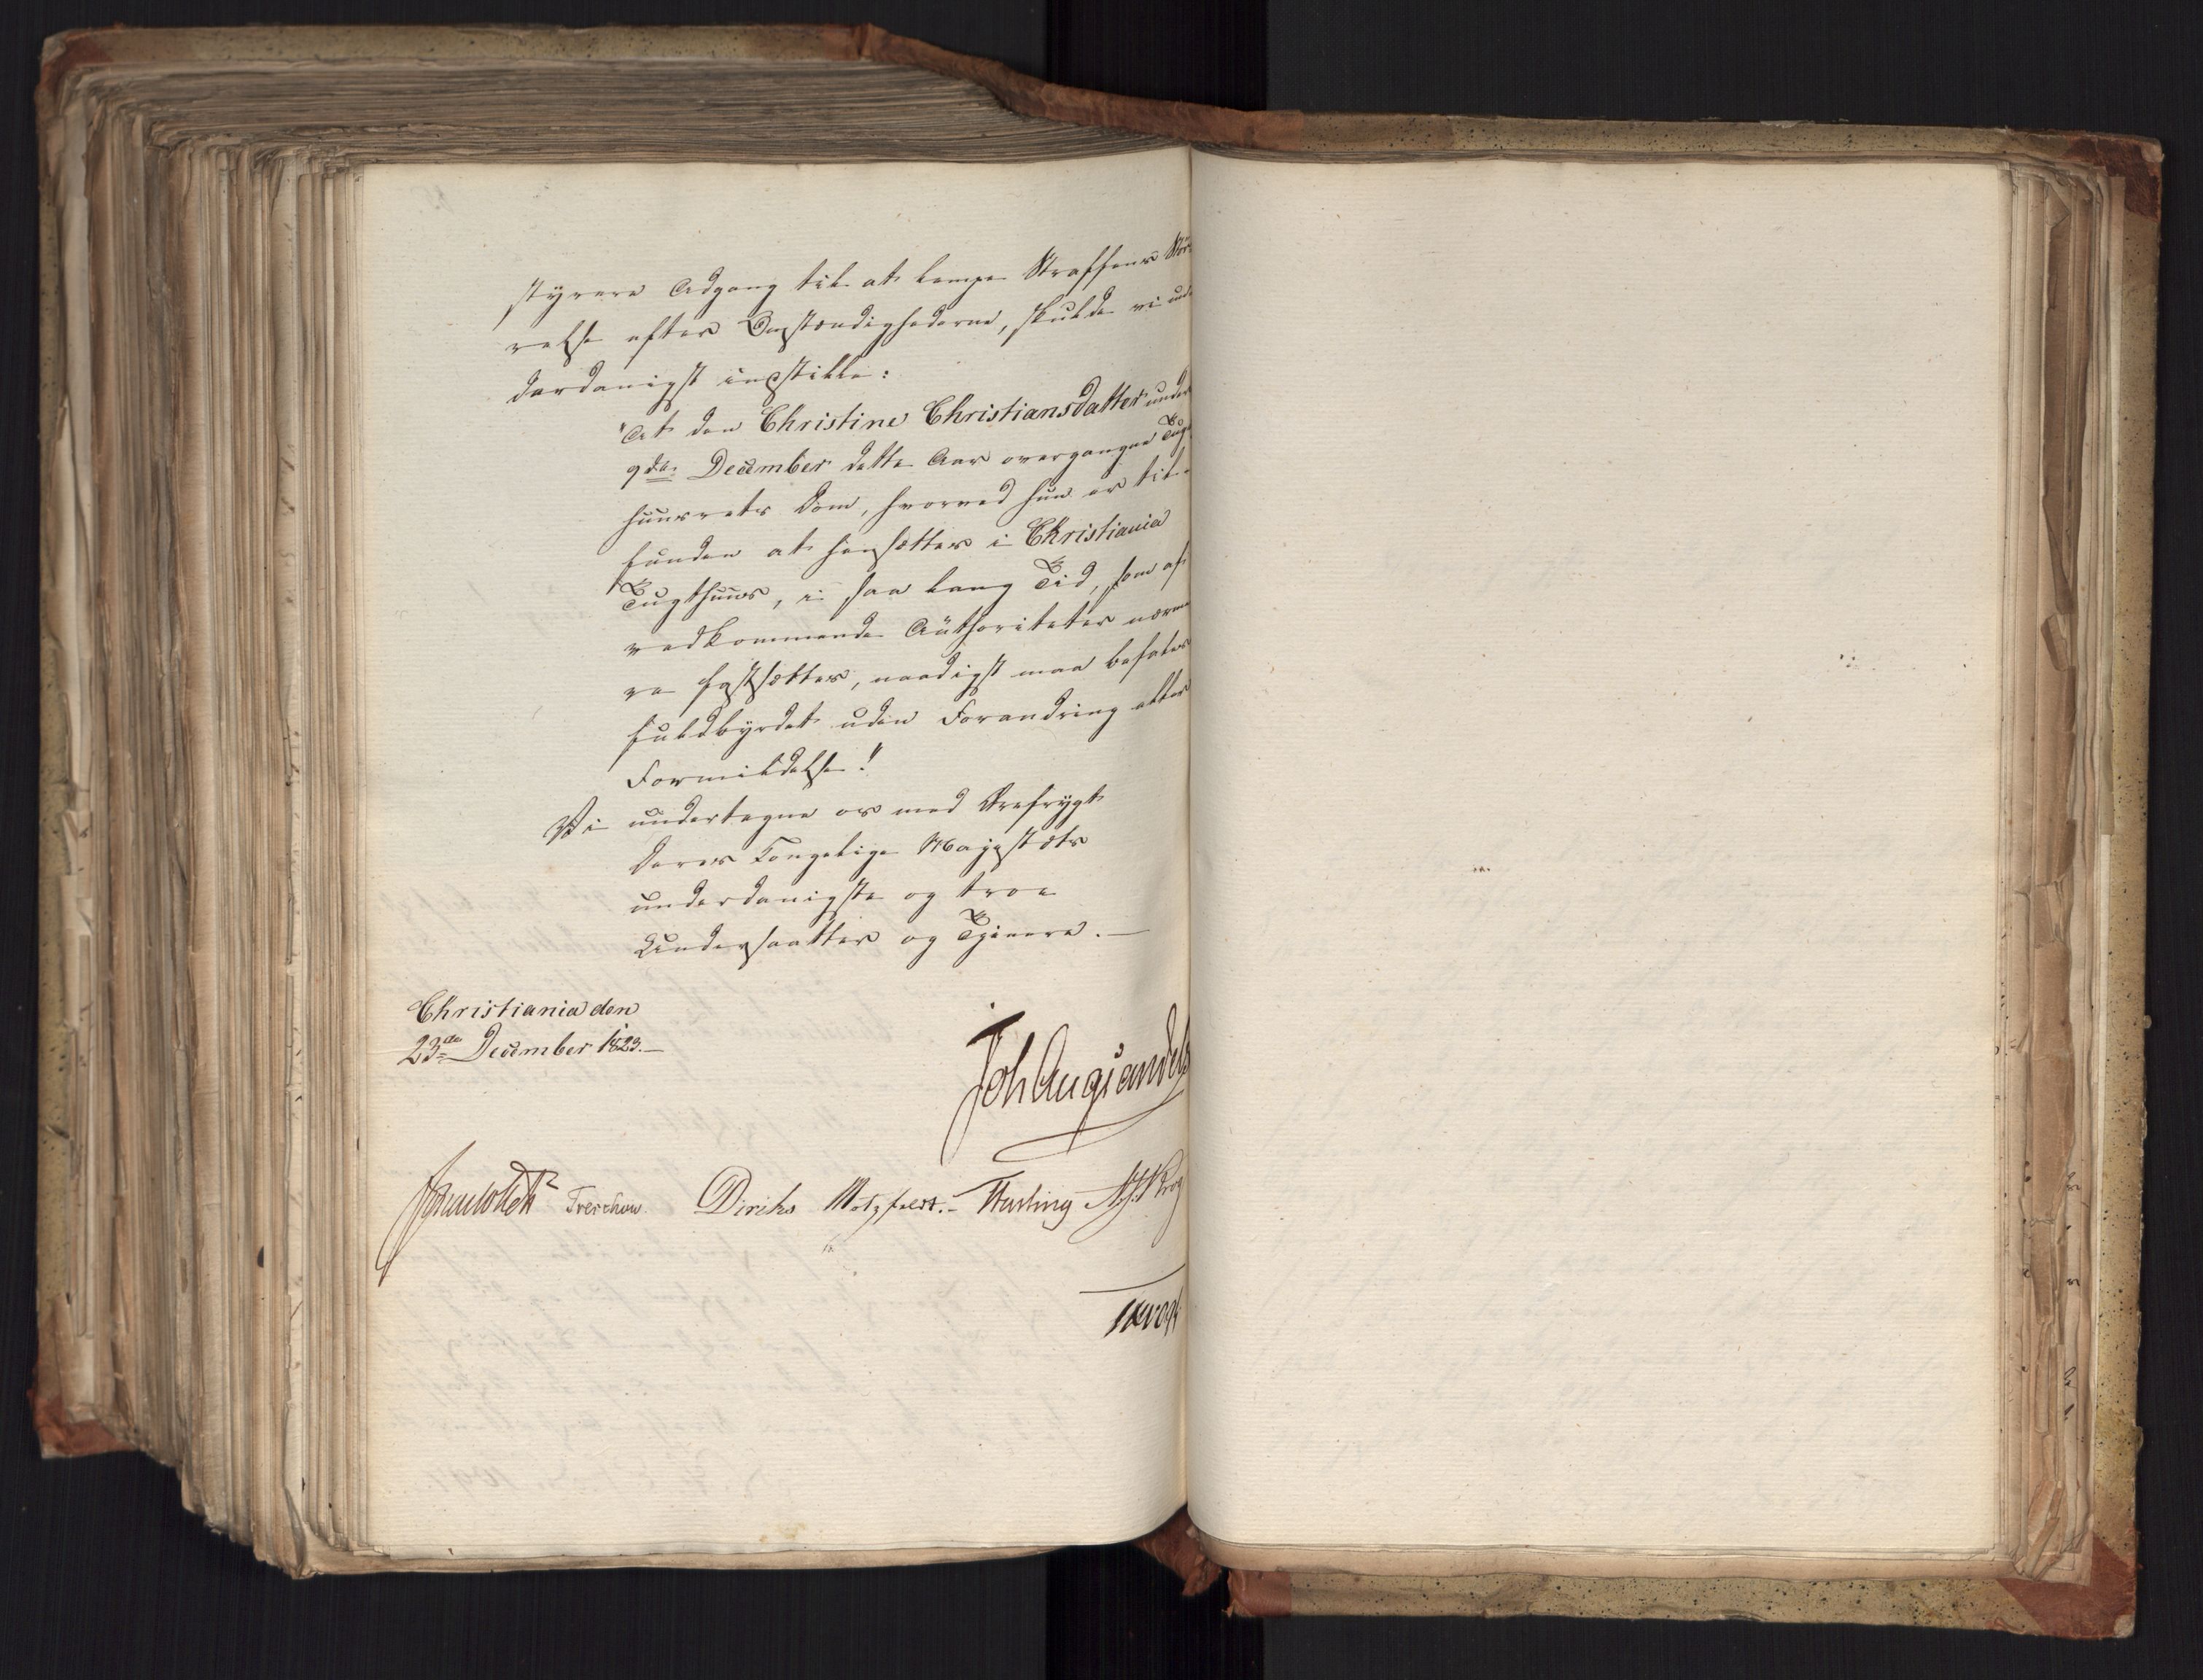 styrere Adgang til at lempe Straffens Stör
relse efter Omstændighederne, skulde vi un
derdanigst indstille:
"At den Christine Christiansdatter under
9de December dette Aar overgangne Tugt
huusrets Dom, hvorved hun er til-
funden at hensættes i Christiania
Tugthuus, i saa lang Tid, som af
vedkommende Authoriteter nærme
re fastsættes, naadigst maa befales
fuldbyrdet uden Forandring eller
Formildelse."
Vi undertegne os med Ærefrygt
Deres Kongelige Majestæts
underdanigste og troe
Undersaatter og Tjenere.
Christiania den
23de December 1823.
Joh Aug Sandels
Sommerhielm Treschow. Diriks Motzfeldt. Fasting